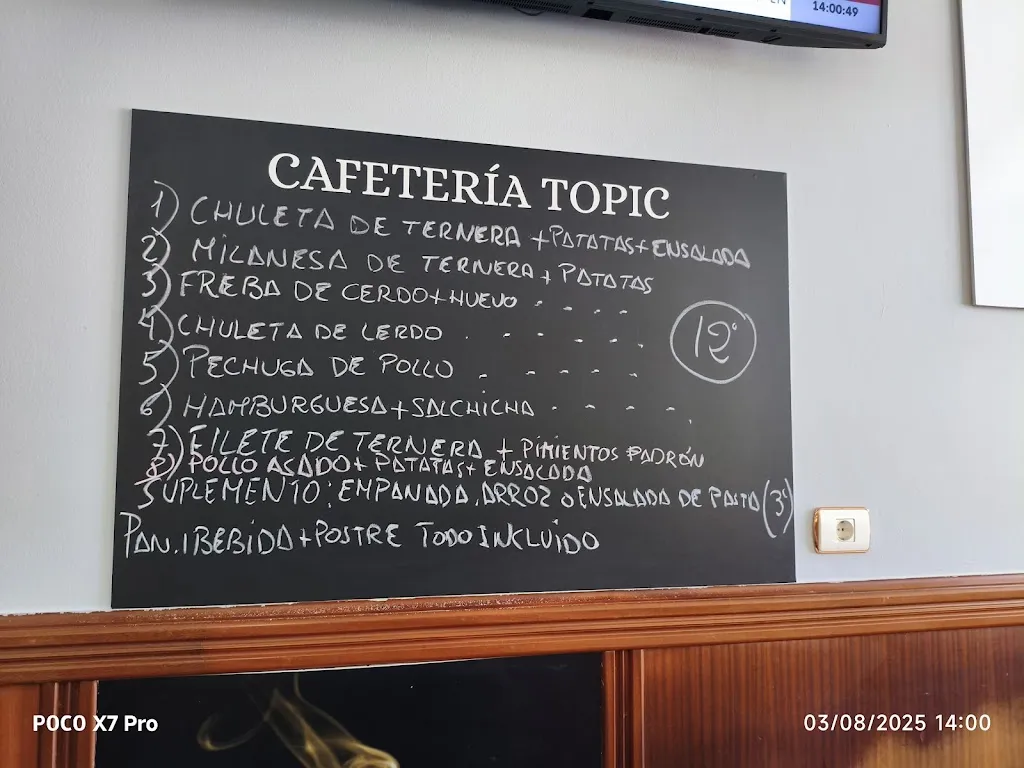 14:00:49
CAFETERÍA TOPIC
1) CHULETA DE TERNERA + PATATAS + ENSALADA
2) MILANESA DE TERNERA + PATATAS
3) FREBA DE CERDO + HUEVO - - - -
12€
4) CHULETA DE CERDO . - - - - -
5) PECHUGA DE POLLO - - - - -
6) HAMBURGUESA + SALCHICHA - - - - -
7) FILETE DE TERNERA + PIMIENTOS PADRÓN
8) POLLO ASADO + PATATAS + ENSALADA
SUPLEMENTO: EMPANADA, ARROZ o ENSALADA DE PASTA (3€)
PAN, 1 BEBIDA + POSTRE TODO INCLUÍDO
POCO X7 Pro
03/08/2025 14:00